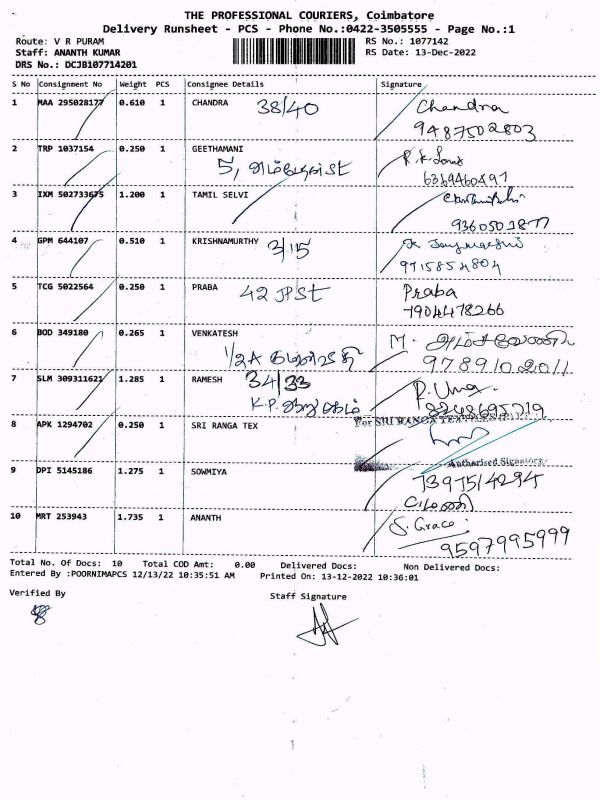 THE PROFESSIONAL COURIERS, Coimbatore
Delivery Runsheet - PCS - Phone No.:0422-3505555 - Page No.:1
Route: V R PURAM
RS No.: 1077142
Staff: ANANTH KUMAR
RS Date: 13-Dec-2022
DRS No.: DCJB107714201
S No Consignment No Weight PCS Consignee Details Signature
1 MAA 295028177 0.610 1 CHANDRA 38/40 Chandra
9487502803
2 TRP 1037154 0.250 1 GEETHAMANI
5, St
6369460497
3 IXM 502733675 1.200 1 TAMIL SELVI
9360501877
4 GPM 644107 0.510 1 KRISHNAMURTHY 3/15
9715854804
5 TCG 5022564 0.250 1 PRABA 42 JP St Praba
7904478266
6 BOD 349180 0.265 1 VENKATESH M.
1/2A
9789102011
7 SLM 309311621 1.285 1 RAMESH 34/33 R. Uma
K.P. 8248695719
8 APK 1294702 0.250 1 SRI RANGA TEX For SRI RANGA
Authorised Signatory
9 DPI 5145186 1.275 1 SOWMIYA 7397514294
10 MRT 253943 1.735 1 ANANTH S. Grace
9597995999
Total No. Of Docs: 10 Total COD Amt: 0.00 Delivered Docs: Non Delivered Docs:
Entered By :POORNIMAPCS 12/13/22 10:35:51 AM Printed On: 13-12-2022 10:36:01
Verified By
Staff Signature